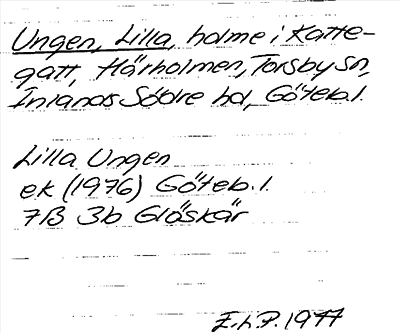 Ungen, Lilla, holme i Katte-
gatt, Härholmen, Torsby sn,
Inlands Södre hd, Göteb. l.
Lilla Ungen
ek (1976) Göteb. l.
7B 3b Glöskär
E.h.P. 1977